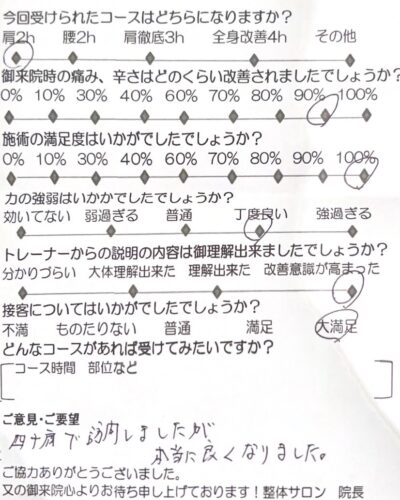 今回受けられたコースはどちらになりますか?
肩2h 腰2h 肩徹底3h 全身改善4h その他
御来院時の痛み、辛さはどのくらい改善されましたでしょうか?
0% 10% 30% 40% 60% 70% 80% 90% 100%
施術の満足度はいかがでしたでしょうか?
0% 10% 30% 40% 60% 70% 80% 90% 100%
力の強弱はいかかでしたでしょうか?
効いてない 弱過ぎる 普通 丁度良い 強過ぎる
トレーナーからの説明の内容は御理解出来ましたでしょうか?
分かりづらい 大体理解出来た 理解出来た 改善意識が高まった
接客についてはいかがでしたでしょうか?
不満 ものたりない 普通 満足 大満足
どんなコースがあれば受けてみたいですか?
コース時間 部位など
ご意見・ご要望
四十肩で訪問しましたが
本当に良くなりました。
ご協力ありがとうございました。
又の御来院心よりお待ち申し上げております!整体サロン 院長